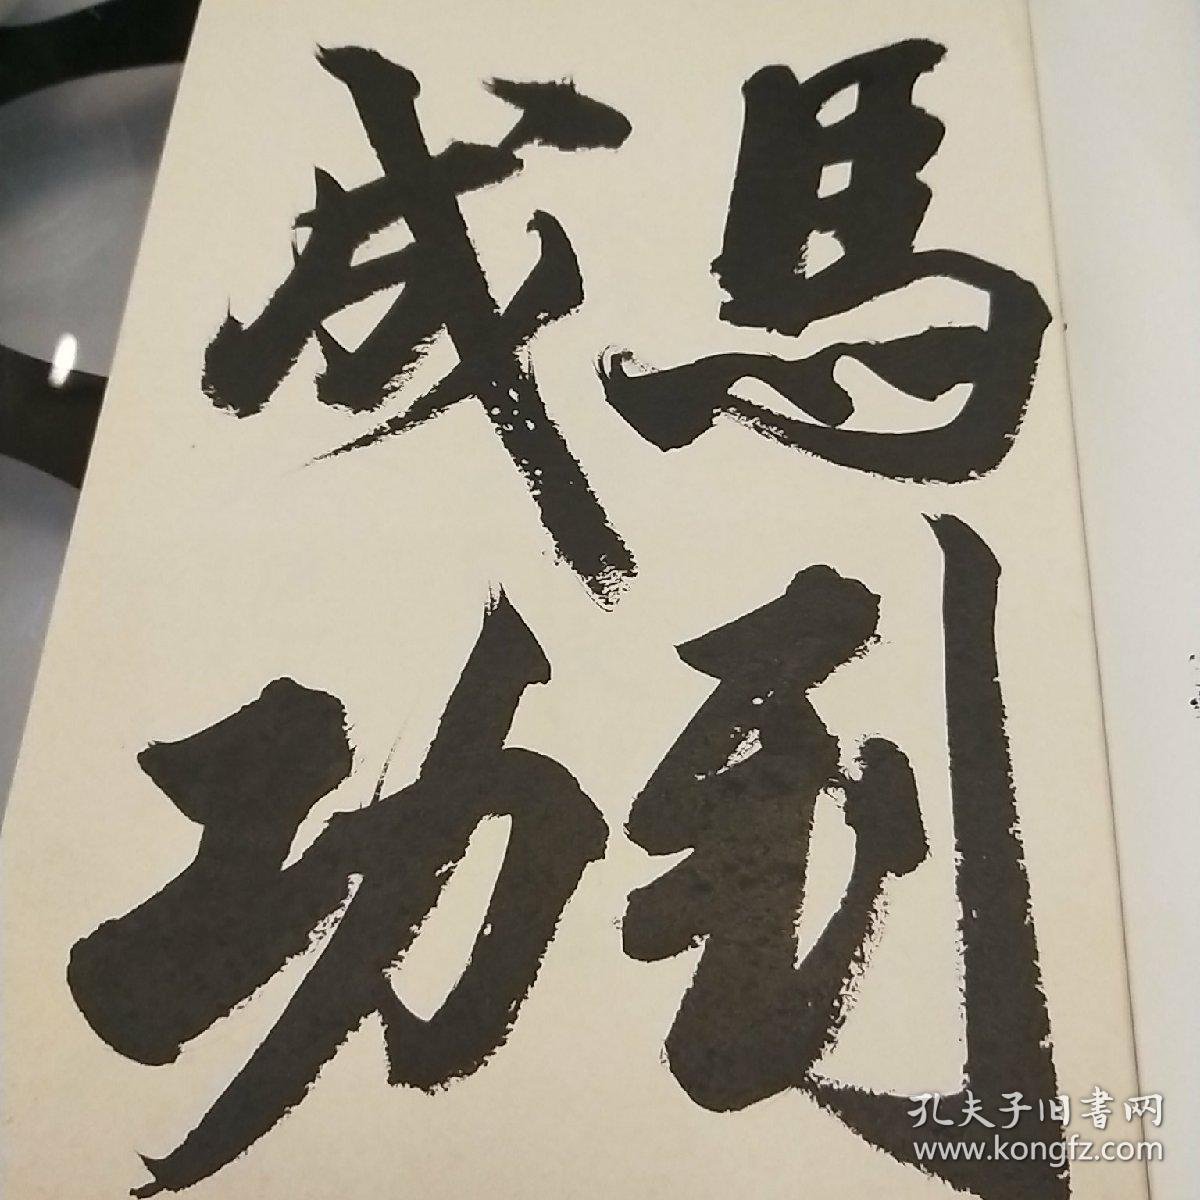 馬到
成功
孔夫子旧書网
www.kongfz.com